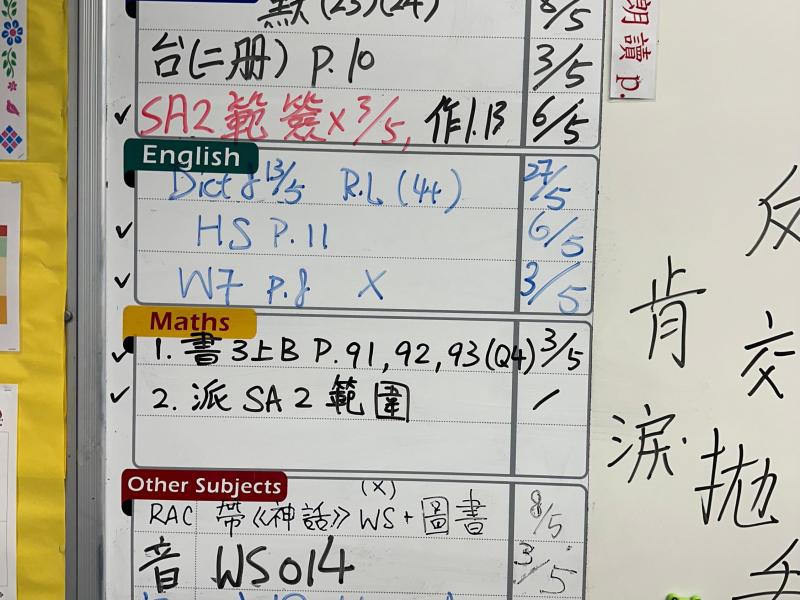 默(23)(24) 8/5
台(二册) P.10 3/5
✓ SA2 範 簽 x 3/5, 作1.13 6/5
English
Dict 8 13/5 R.L (44) 27/5
✓ HS P.11 6/5
✓ W7 p.8 X 3/5
Maths
✓ 1. 書3上B P.91,92,93(Q4) 3/5
✓ 2. 派 SA2 範圍 /
Other Subjects
(x)
RAC 帶《神話》WS+圖書 8/5
音 WS014 3/5
朗讀 p.
肯
淚
交
拋